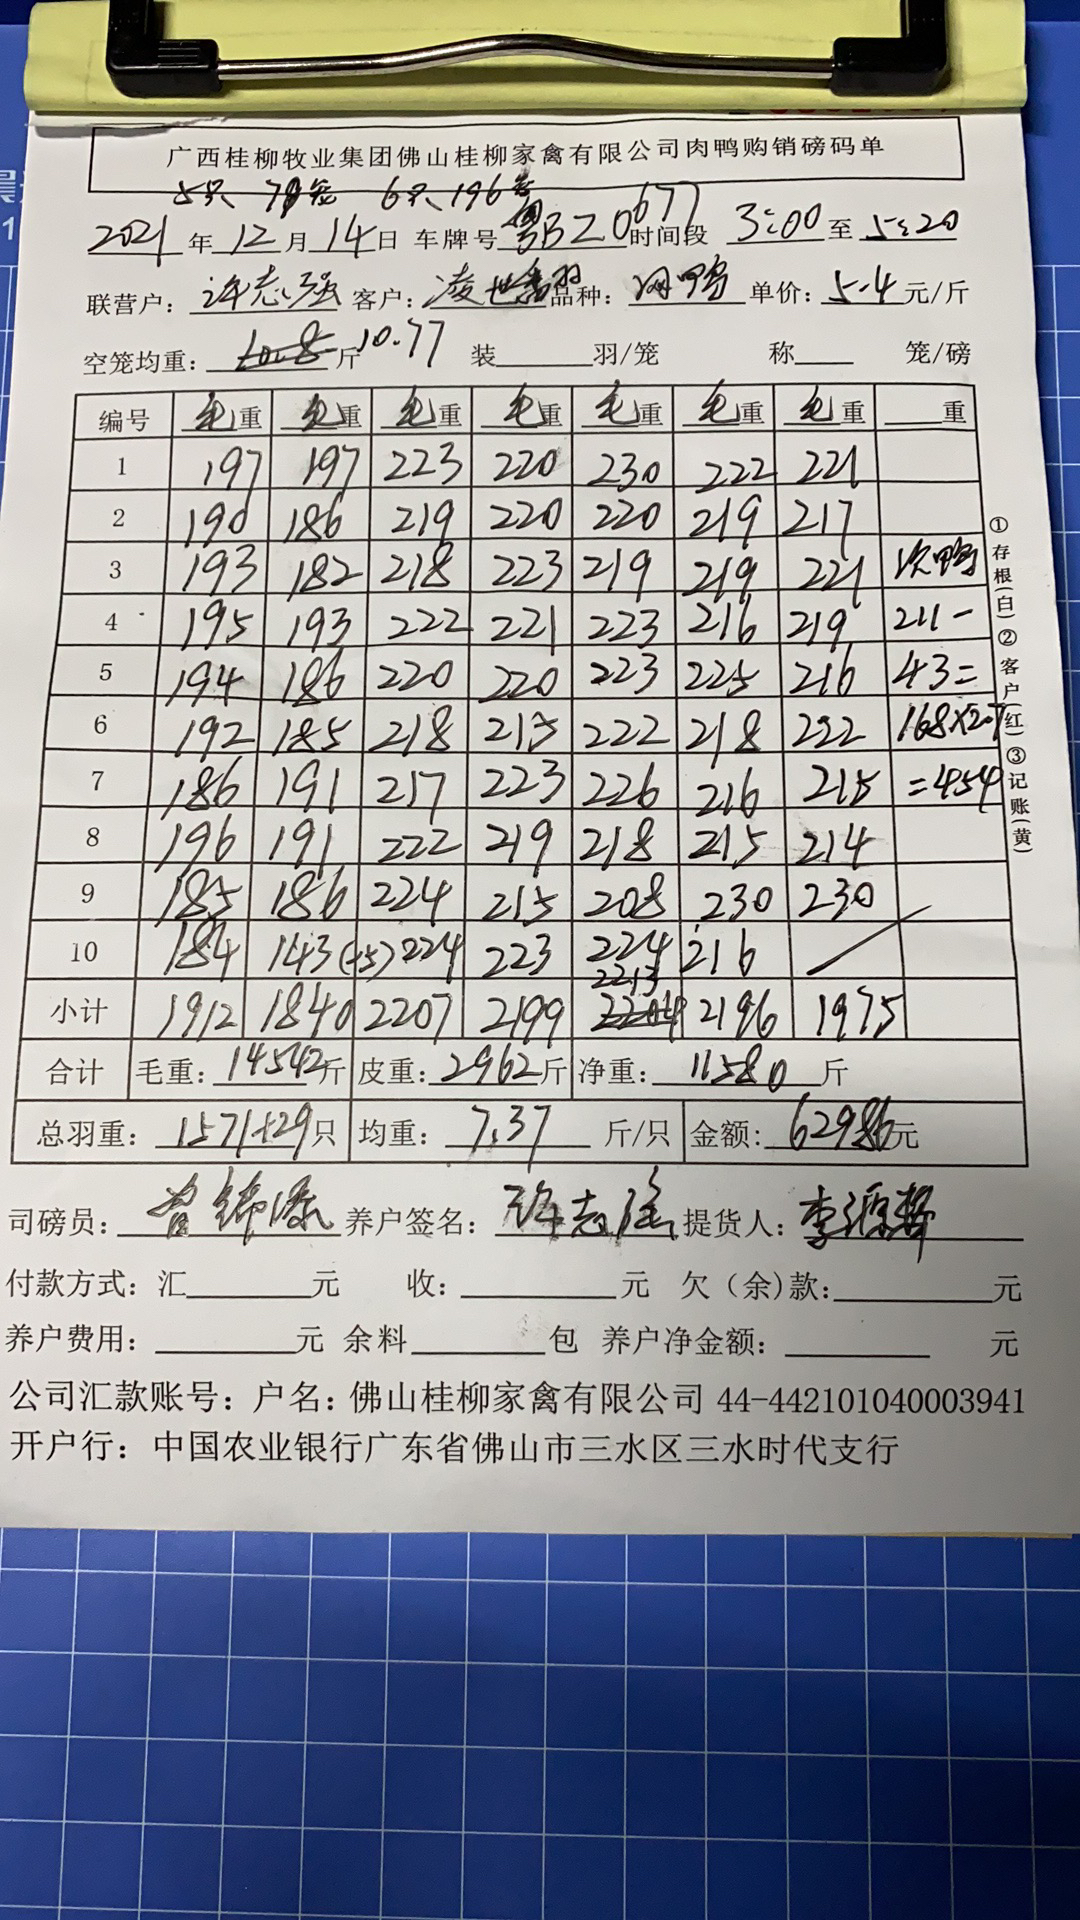 广西桂柳牧业集团佛山桂柳家禽有限公司肉鸭购销磅码单
5只 79笼 6只 196笼
2021年12月14日 车牌号粤BZ0677时间段 3:00至5:20
联营户：许志强 客户：凌世 品种： 鸭 单价：5.4元/斤
空笼均重：10.8斤10.77 装 羽/笼 称 笼/磅
编号 毛重 毛重 毛重 毛重 毛重 毛重 毛重 重
1 197 197 223 220 230 222 221
2 190 186 219 220 220 219 217
3 193 182 218 223 219 219 221 次鸭
4 195 193 222 221 223 216 219 211-
5 194 186 220 220 223 225 216 43=
6 192 185 218 215 222 218 222 168×2.7
7 186 191 217 223 226 216 215 =454
8 196 191 222 219 218 215 214
9 185 186 224 215 208 230 230
10 184 143(+5) 224 223 224 216 /
小计 1912 1840 2207 2199 2213 2196 1975
合计 毛重：14542斤 皮重：2962斤 净重：11580斤
总羽重：1571+29只 均重：7.37 斤/只 金额：62986元
司磅员：曾锦添 养户签名：许志强 提货人：李源
付款方式：汇 元 收： 元 欠（余)款： 元
养户费用： 元 余料 包 养户净金额： 元
公司汇款账号：户名：佛山桂柳家禽有限公司 44-442101040003941
开户行：中国农业银行广东省佛山市三水区三水时代支行
①存根(白)②客户(红)③记账(黄)